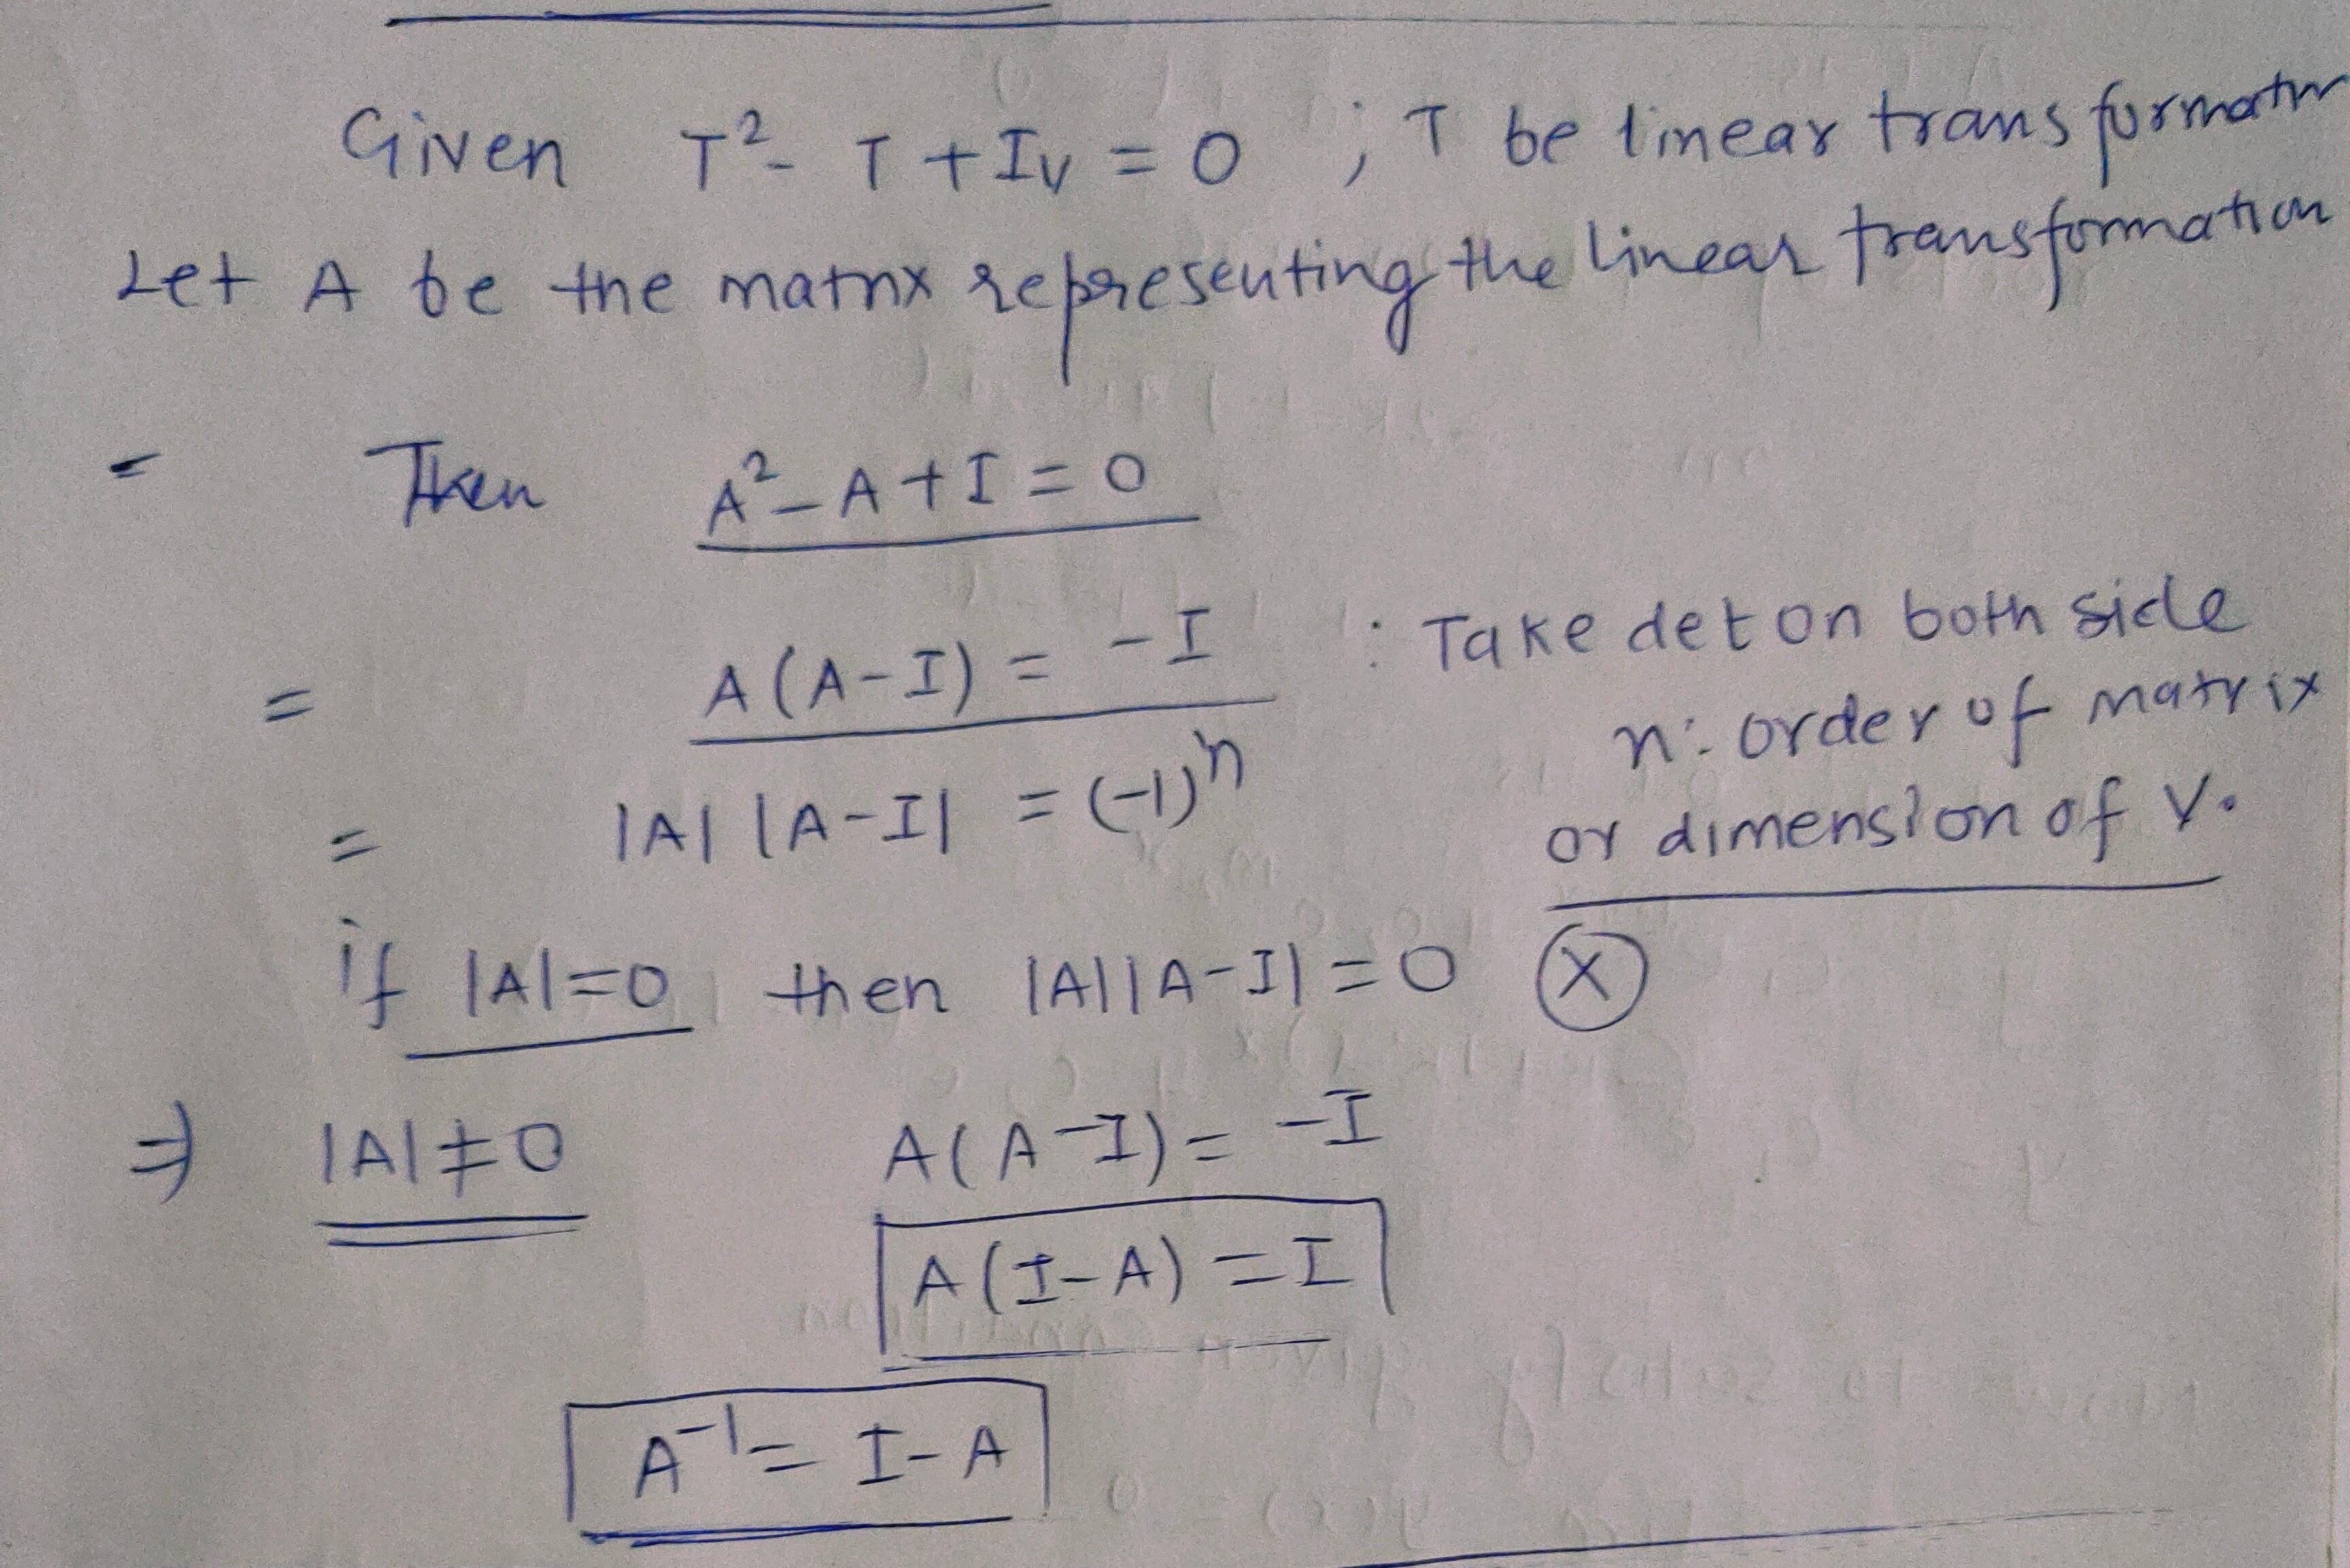 Given T² - T + Iv = 0 ; T be linear transformation
Let A be the matrix representing the linear transformation
- Then A² - A + I = 0
= A(A-I) = -I : Take det on both side
n: order of matrix
= |A| |A-I| = (-1)ⁿ
or dimension of V.
if |A|=0 then |A||A-I| = 0 ⓧ
⇒ |A| ≠ 0 A(A-I) = -I
A(I-A) = I
A⁻¹ = I-A